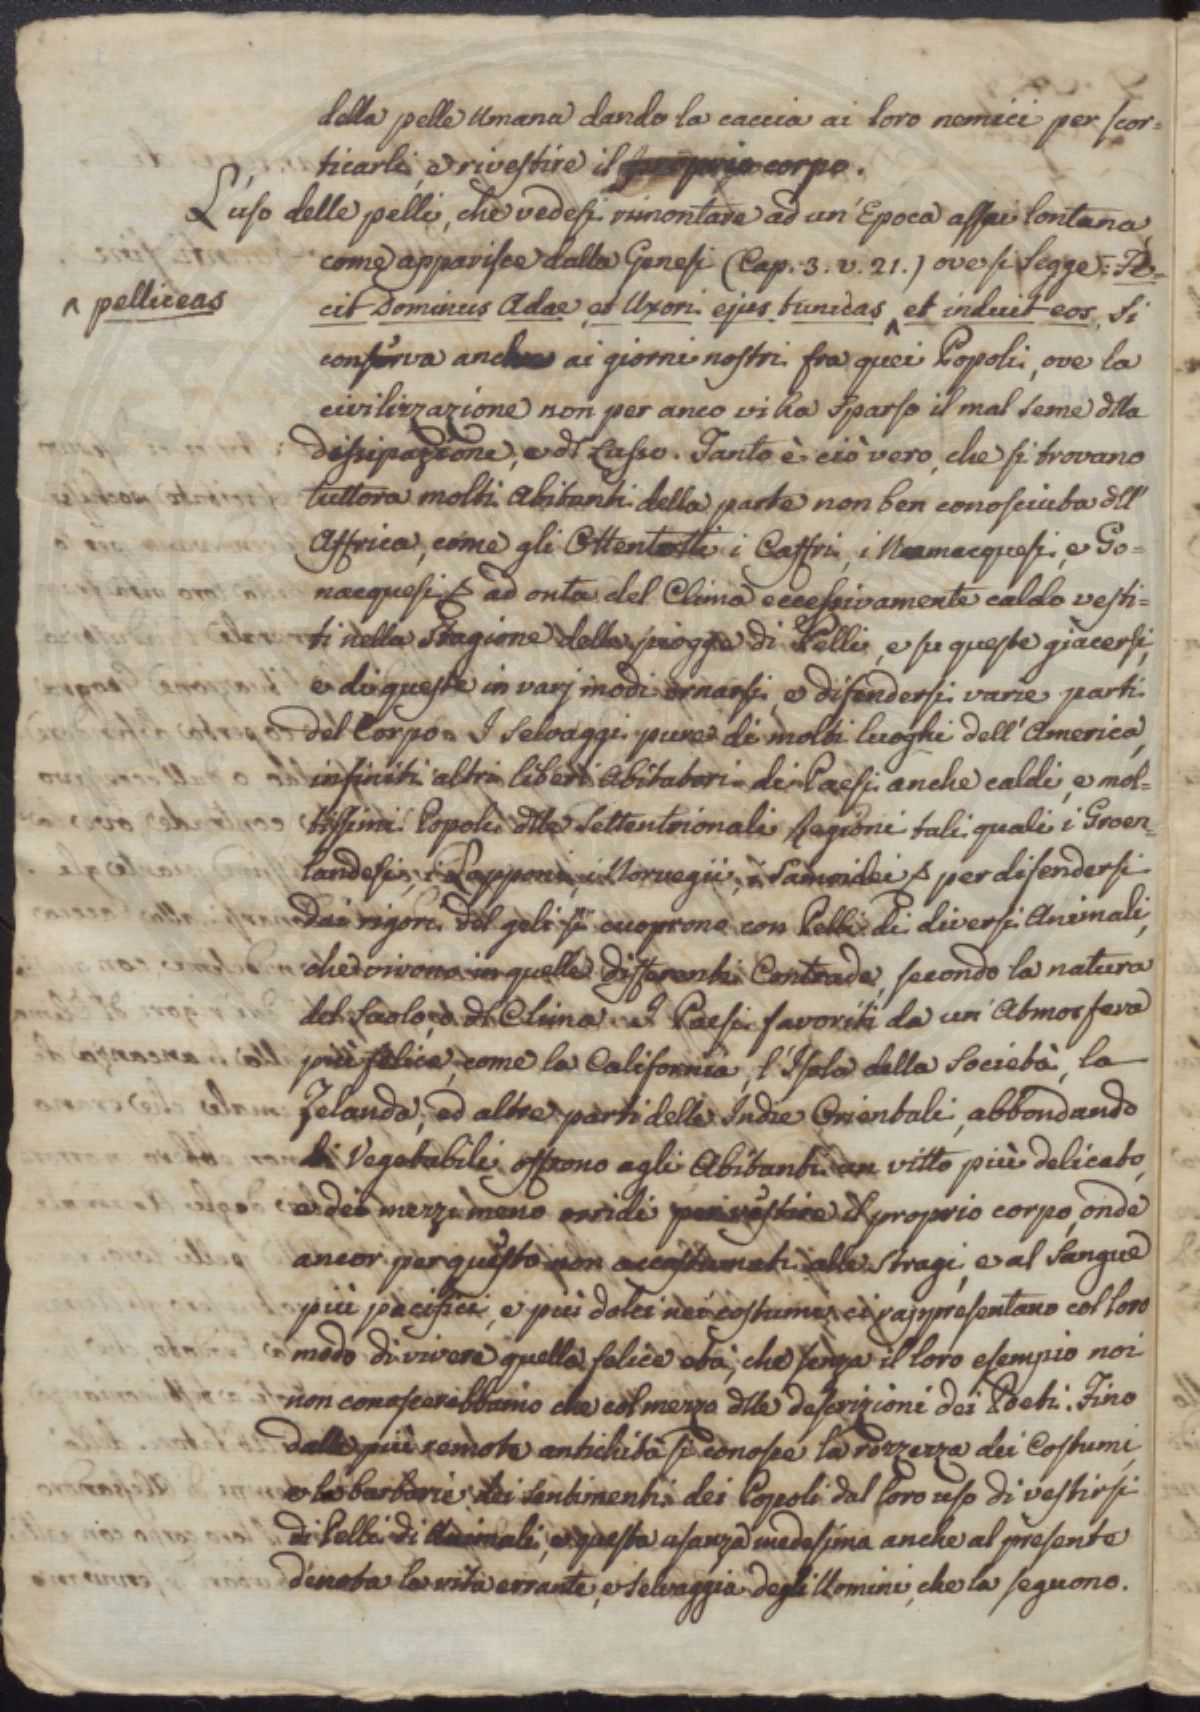 della pelle Umana dando la caccia ai loro nemici per scor=
ticarli, e rivestire il proprio corpo.
L'uso delle pelli, che vedesi rimontare ad un'Epoca assai lontana,
come apparisce dalla Genesi (Cap. 3. v. 21.) ove si legge: Fe=
^ pelliceas
cit Dominus Adae, et Uxori ejus tunicas ^ et induit eos, si
conserva anche ai giorni nostri fra quei Popoli, ove la
civilizzazione non per anco vi ha sparso il mal seme dlla
dissipazione, e dl Lusso. Tanto è ciò vero, che si trovano
tuttora molti Abitanti della parte non ben conosciuta dll'
Affrica, come gli Ottentotti i Caffri, i Namacquesi, e Go=
nacquesi ad onta del Clima eccessivamente caldo vesti=
ti nella Stagione delle piogge di Pelli, e su queste giacersi,
e di queste in varj modi ornarsi, e difendersi varie parti
del Corpo. I Selvaggi pure di molti luoghi dell'America,
infiniti altri liberi Abitatori di Paesi anche caldi, e mol=
tissimi Popoli dlle Settentrionali Regioni tali quali i Groen=
landesi, i Lapponi, i Norvegii, i Samoidei per difendersi
dai rigori del geli si cuoprono con Pelli di diversi Animali,
che vivono in quelle differenti Contrade, secondo la natura
del Suolo, o dl Clima. I Paesi favoriti da un'Atmosfera
più felice, come la California, l'Isola della Società, la
Zelanda, ed altre parti delle Indie Orientali, abbondando
di Vegetabili offrono agli Abitanti un vitto più delicato,
e dei mezzi meno orridi per vestire il proprio corpo, onde
ancor per questo non accostumati alle Stragi, e al Sangue
più pacifici, e più dolci nei costumi ci rappresentano col loro
modo di vivere quella felice età, che senza il loro esempio noi
non conosceribbamo che col mezzo dlle descrizioni dei Poeti. Fino
dalla più remota antichità si conosce la rozzezza dei Costumi,
e la barbarie dei sentimenti dei Popoli dal loro uso di vestirsi
di Pelli di Animali, e questa usanza medesima anche al presente
denota la vita errante, e selvaggia degli Uomini, che la seguono.